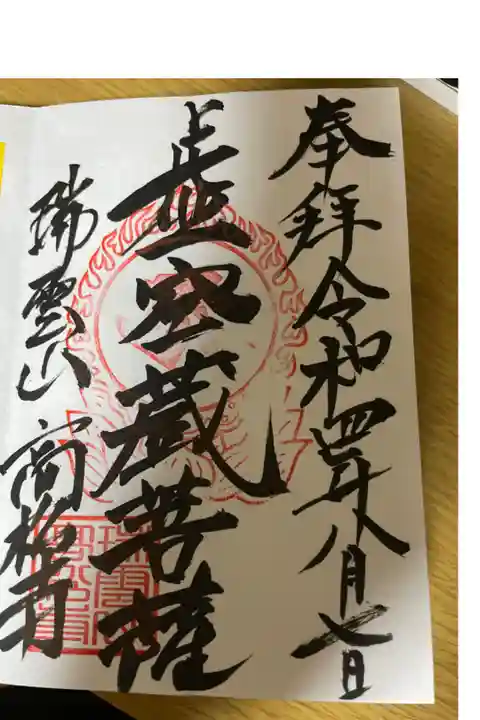 奉拝令和四年八月七日
虚空蔵菩薩
瑞雲山高松寺